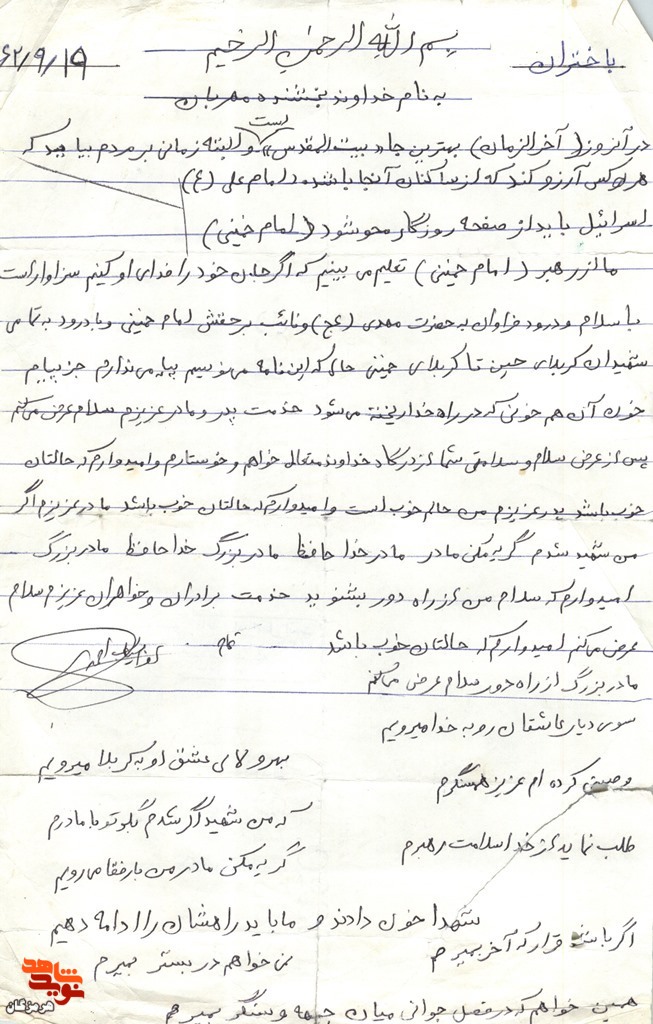 باختران
بسم الله الرحمن الرحیم
۶۲/۹/۱۵
به نام خداوند بخشنده مهربان
در آنروز (آخرالزمان) بهترین جا «بیت المقدس» است و البته زمانی بر مردم بیاید که
هر کس آرزو کند که از ساکنان آنجا باشد (امام علی (ع)
اسرائیل باید از صفحه روزگار محو شود (امام خمینی)
ما از رهبر (امام خمینی) تعلیم می بینیم که اگر جان خود را فدای او کنیم سزاوار است
با سلام و درود فراوان به حضرت مهدی (عج) و نائب بر حقش امام خمینی و با درود به تمامی
شهیدان کربلای حسین تا کربلای خمینی حال که این نامه می نویسم پیامی ندارم جز پیام
خون آن هم خونی که در راه خدا ریخته می شود خدمت پدر و مادر عزیزم سلام عرض می کنم
پس از عرض سلام و سلامتی شما از درگاه خداوند متعال خواهم و خوستارم و امیدوارم که حالتان
خوب باشد پدر عزیزم من حالم خوب است و امیدوارم که حالتان خوب باشد مادر عزیزم اگر
من شهید شدم گریه مکن مادر مادر خدا حافظ مادر بزرگ خدا حافظ مادر بزرگ
امیدوارم که سلام من از راه دور بشنوید خدمت برادران و خواهران عزیزم سلام
عرض می کنم امیدوارم که حالتان خوب باشد تمام
مادر بزرگ از راه دور سلام عرض می کنم
سوی دیار عاشقان رو به خدا میرویم
بهر ولای عشق او به کربلا میرویم
وصیتی کرده ام عزیز همسنگرم
که من شهید اگر شدم بگو تو با مادرم
طلب نماید از خدا سلامت رهبرم
گریه مکن مادر من با رفقا می رویم
شهدا خون دادند و ما باید راهشان را ادامه دهیم
اگر باشد قرار که آخر بمیرم
نمی خواهم در بستر بمیرم
همین خواهم که در فصل جوانی میان جبهه و سنگر بمیرم
نوید شاهد
هرمزگان